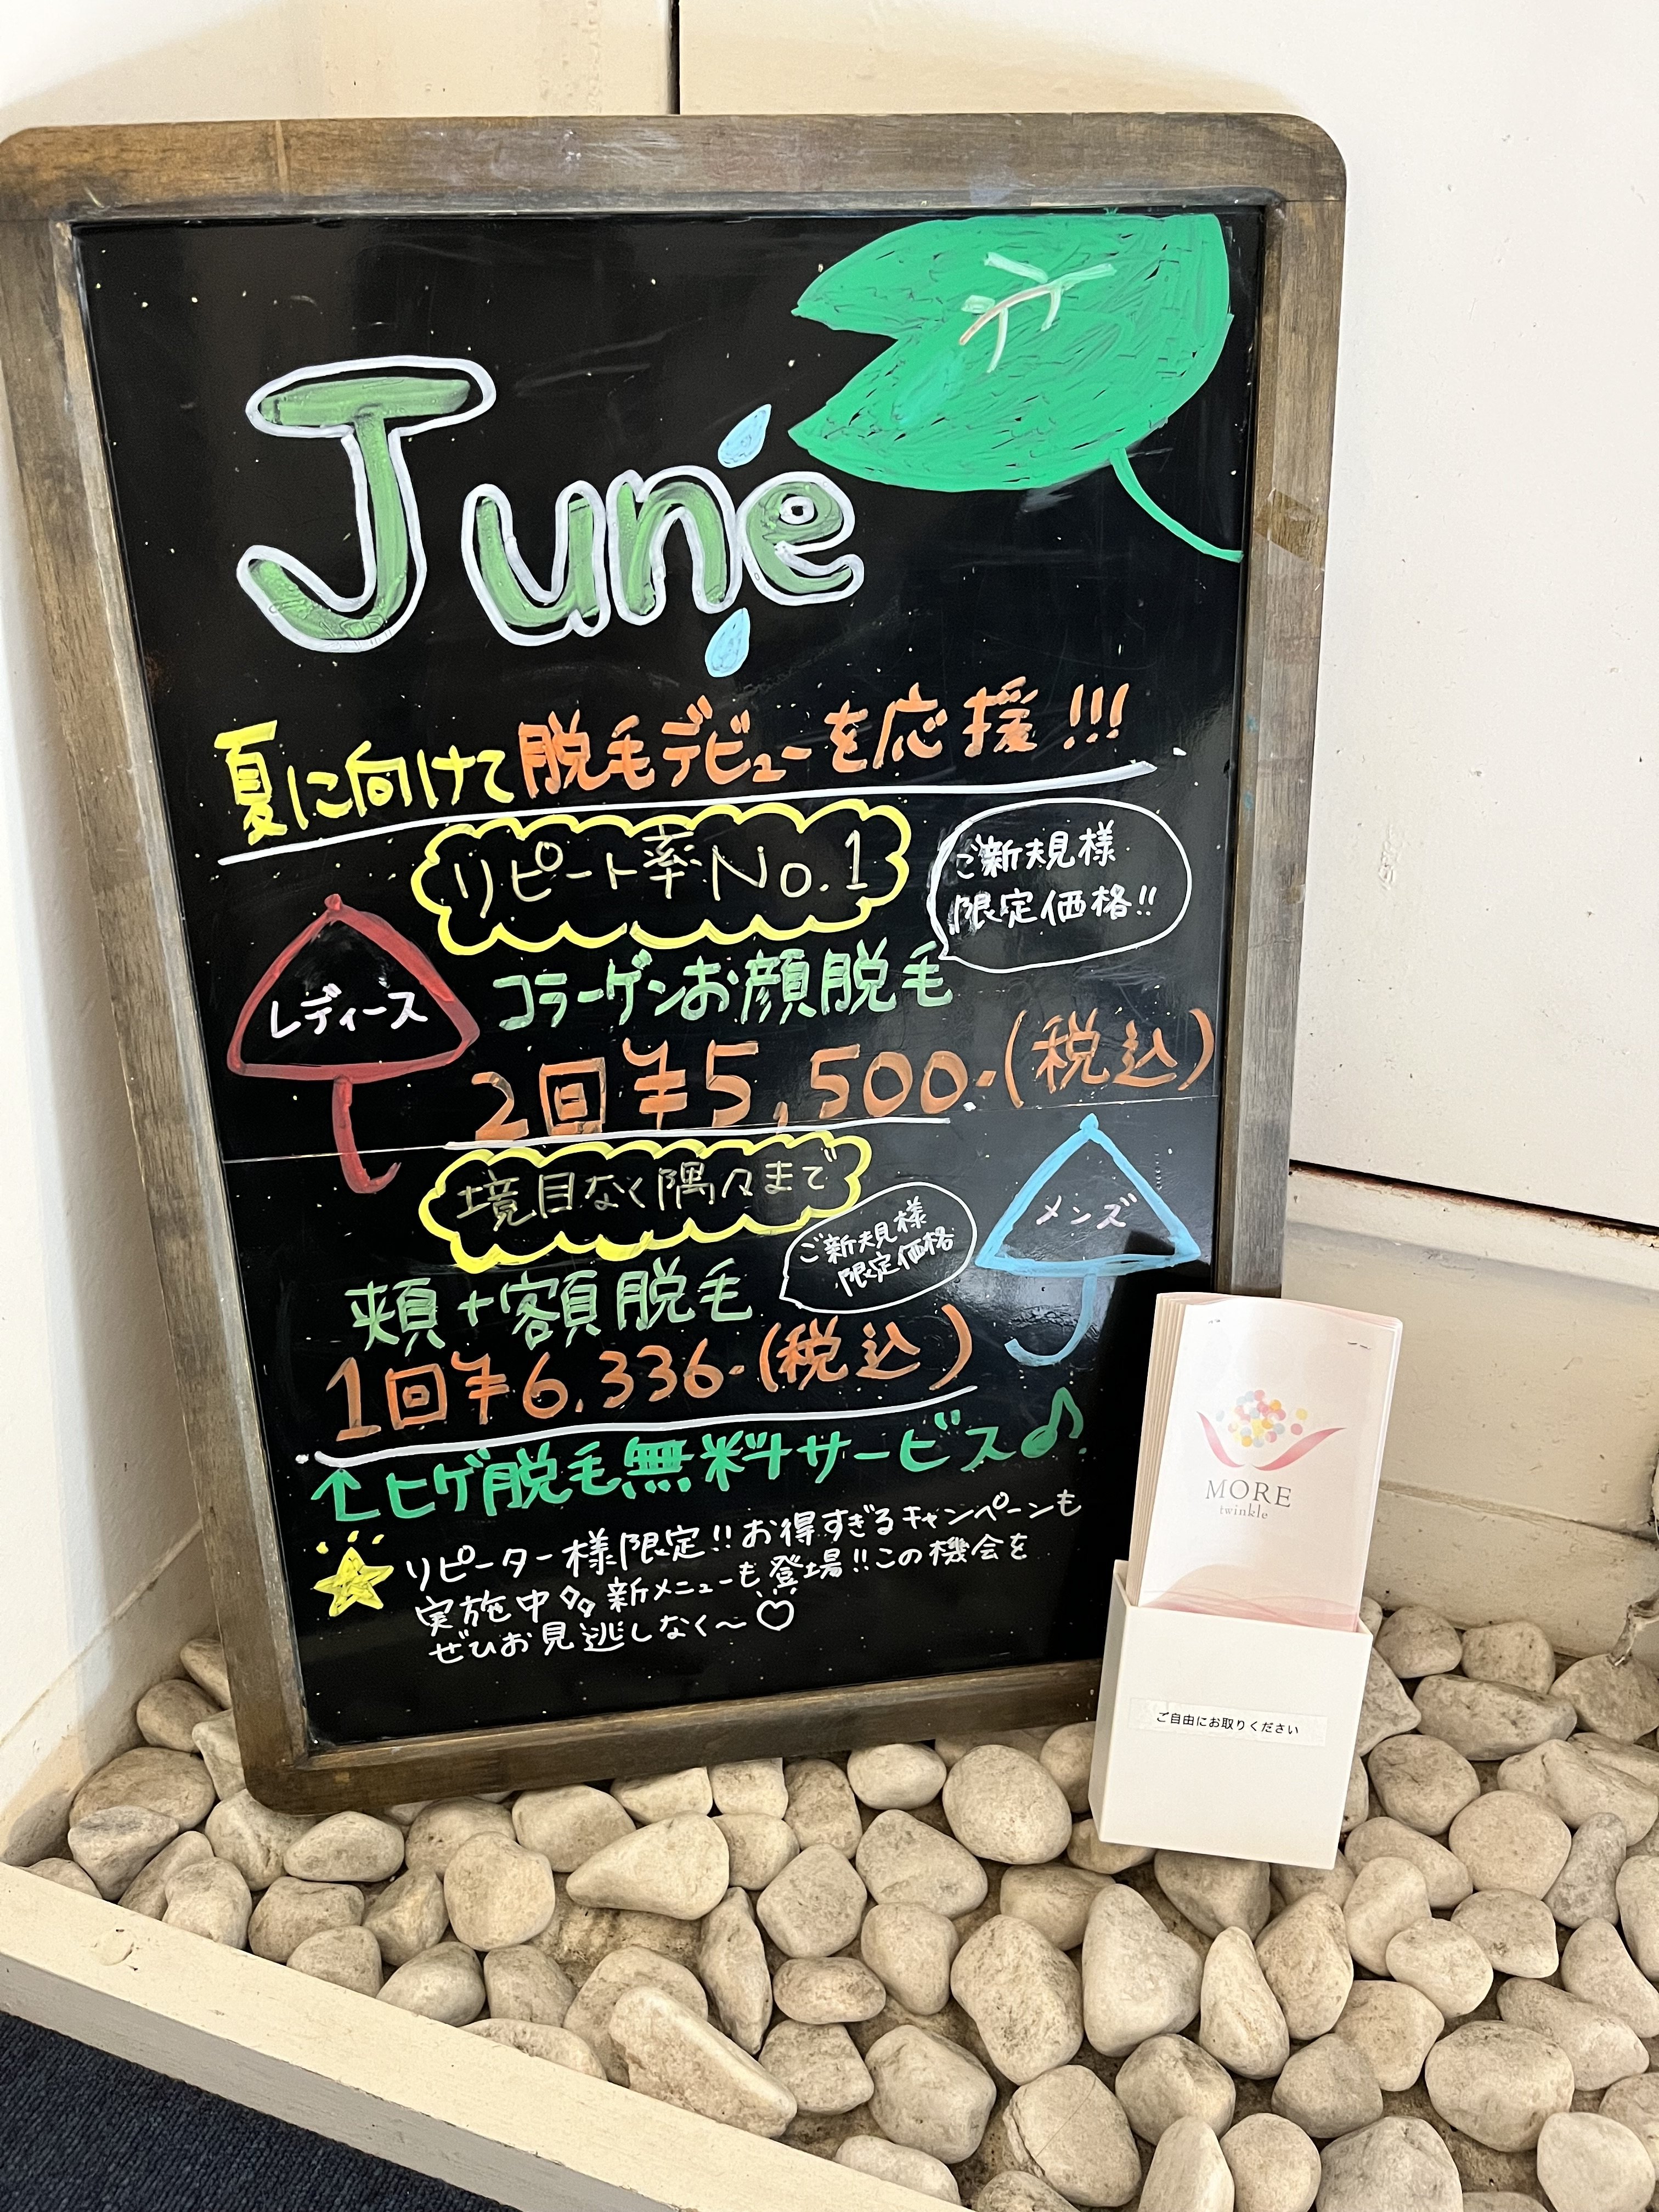 June
夏に向けて脱毛デビューを応援!!!
リピート率No.1
ご新規様
限定価格!!
レディース
コラーゲンお顔脱毛
2回¥5,500-(税込)
境目なく隅々まで
ご新規様
限定価格
メンズ
頬+額脱毛
1回¥6.336-(税込)
↑ヒゲ脱毛無料サービス♪
リピーター様限定!!お得すぎるキャンペーンも
実施中 新メニューも登場!!この機会を
ぜひお見逃しなく〜♡
MORE
twinkle
ご自由にお取りください